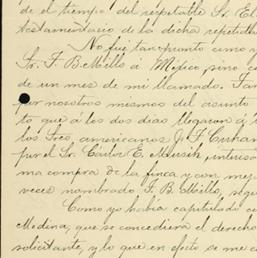 de el tiempo del repetable Sr. El
testamentario de la dicha repetida
No fué tan pronto como y
Sr. F. B. Mills á Méjico, pino c
de un mes de mi llamado. Tan
por nosotros mismos del asunto
to que á los dos dias llegaron á
los Sres. americanos J. F. Curran
por el Sr. Carlos E. interes
ma compra de la finca y con me
veces nombrado F. B. Mills,
Como yo habia capitulado co
Medina, que se concediera el derecho
solicitante, y lo que en efecto se me c